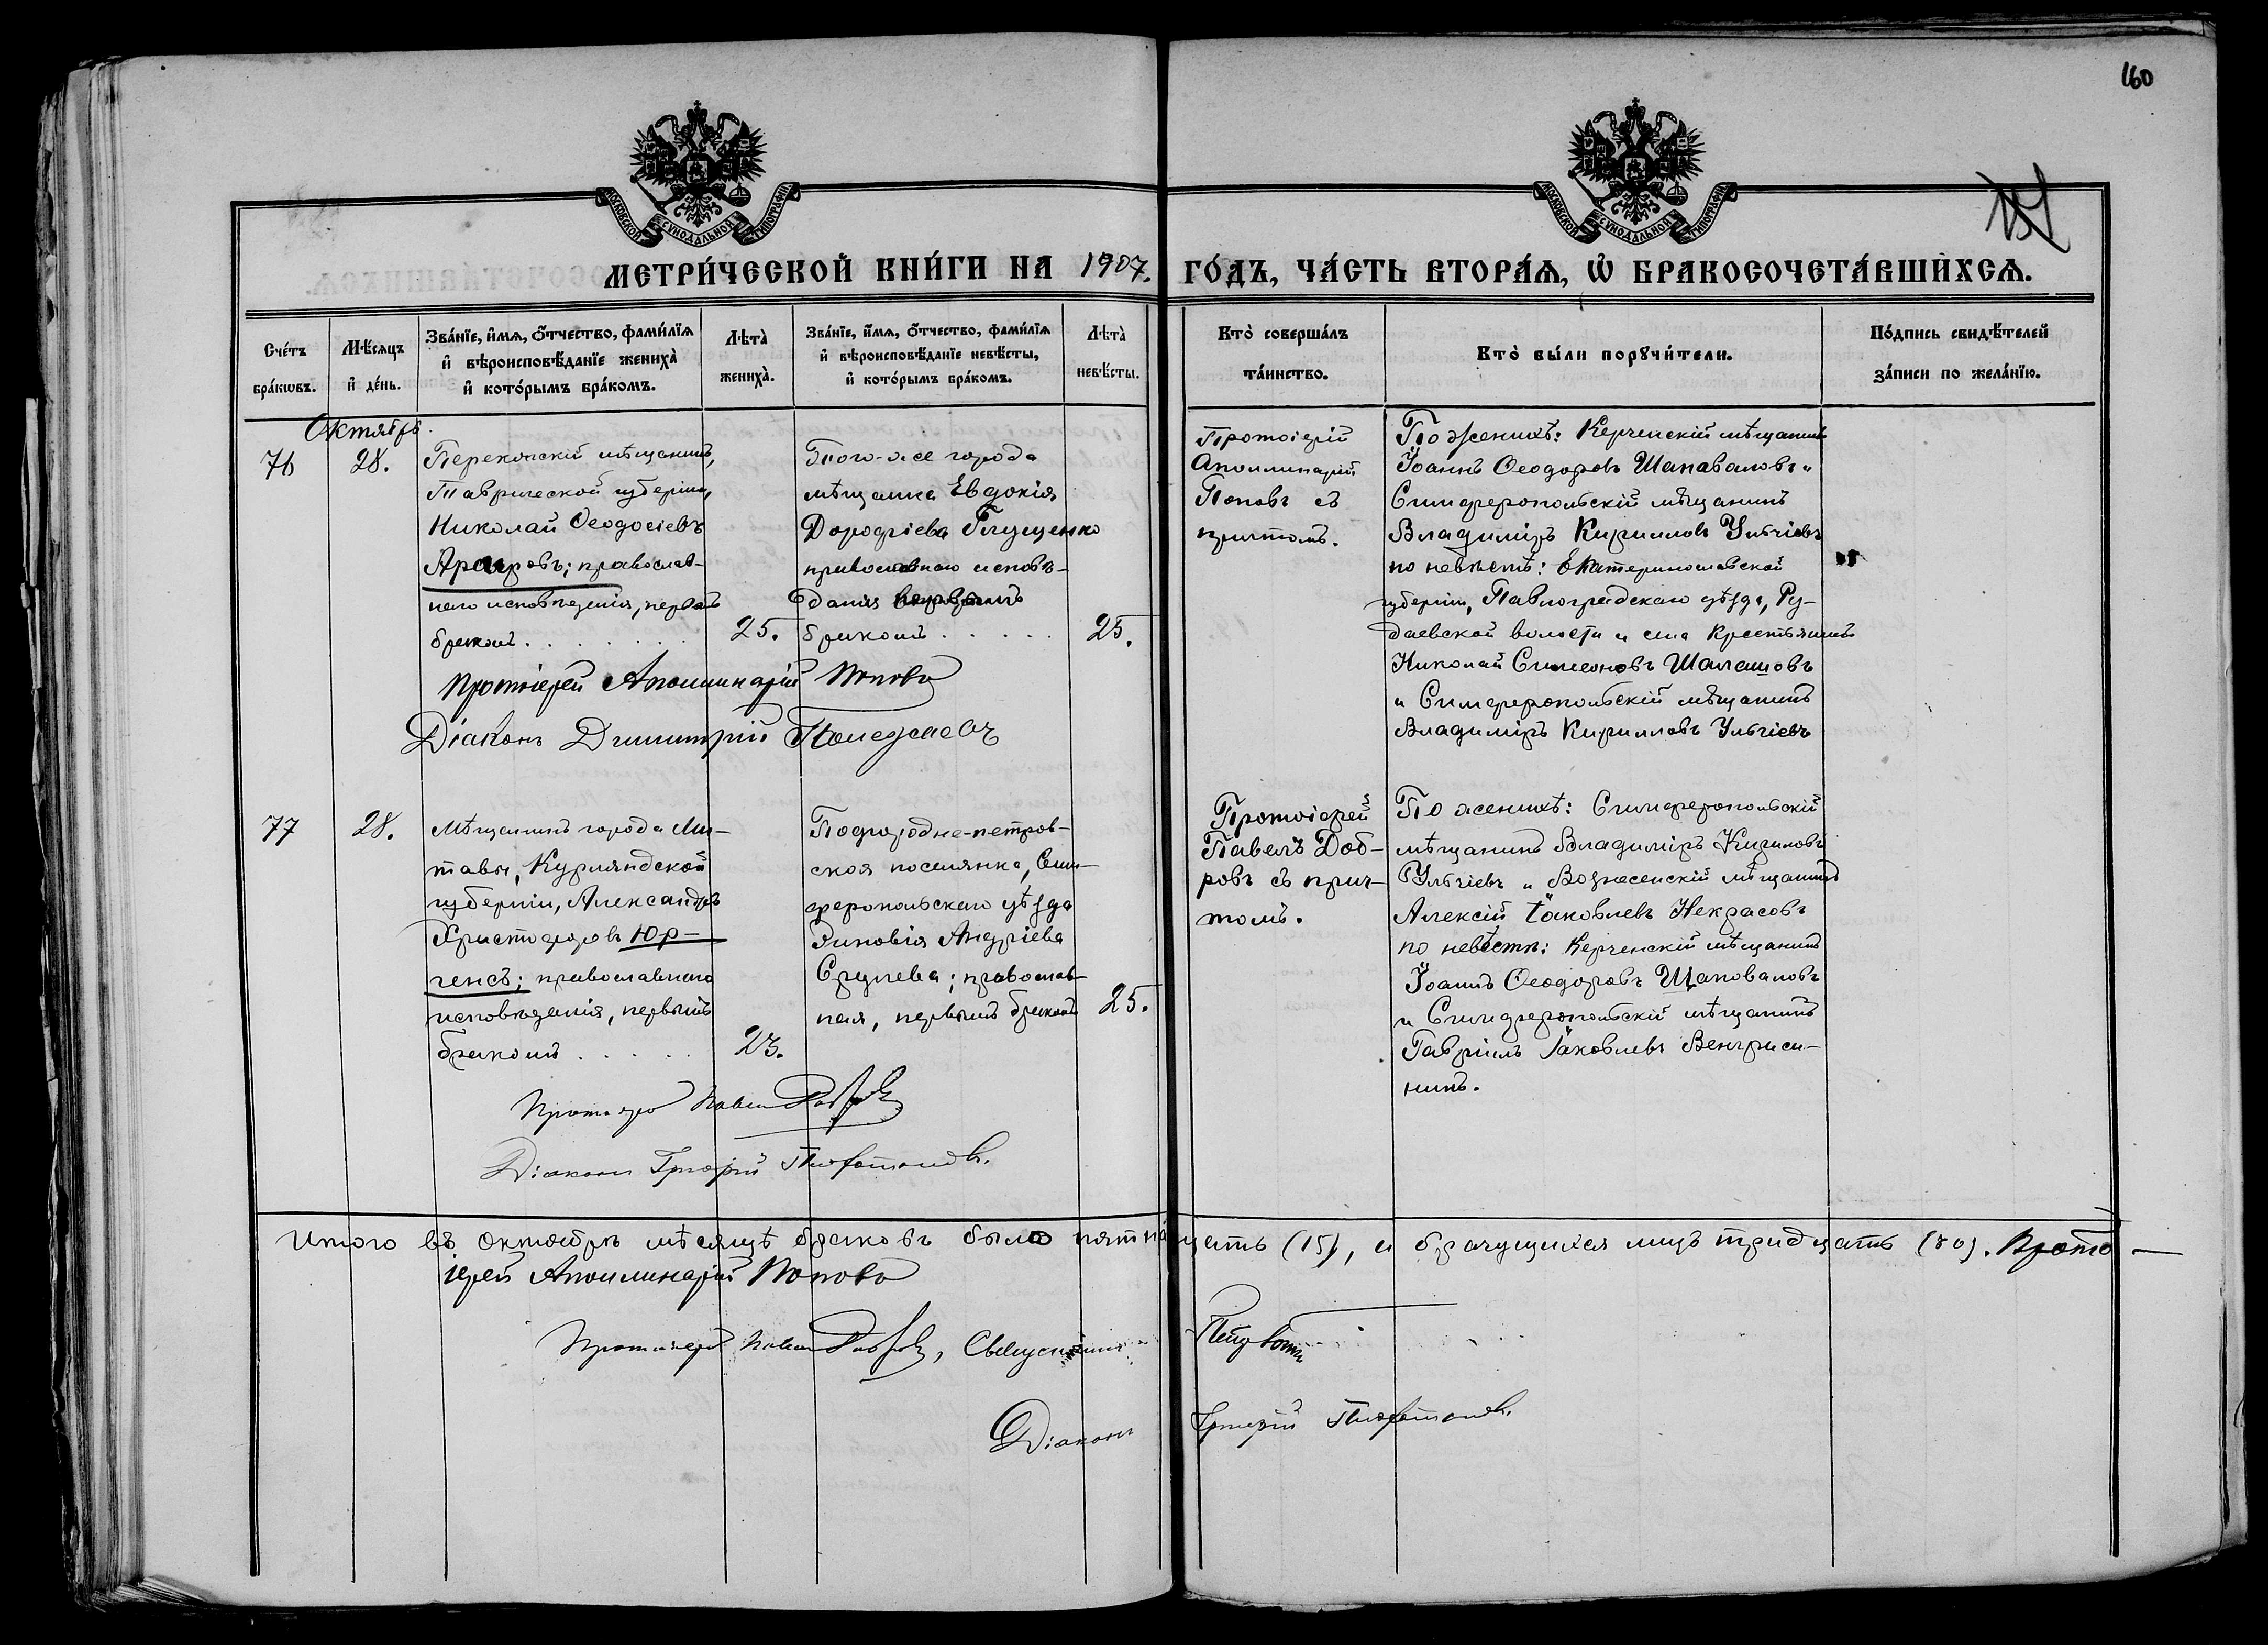 160
МОСКОВСКОЙ СУНОДАЛЬНОЙ ТИПОГРАФІИ
МОСКОВСКОЙ СУНОДАЛЬНОЙ ТИПОГРАФІИ
МЕТРИ́ЧЕСКОЙ КНИ́ГИ НА 1907. ГО́ДЪ, ЧА́СТЬ ВТОРА́Ѧ, Ѡ҆ БРАКОСОЧЕТА́ВШИХСѦ.
Сче́тъ
бра́кѡвъ.
Мѣ́сяцъ
и҆ де́нь.
Зва́нїе, и҆́мѧ, о҆́тчество, фами́лїѧ
и҆ вѣроисповѣ́данїе жениха̀
и҆ кото́рымъ бра́комъ.
Лѣта̀
жениха̀.
Зва́нїе, и҆́мѧ, о҆́тчество, фами́лїѧ
и҆ вѣроисповѣ́данїе невѣ́сты,
и҆ кото́рымъ бра́комъ.
Лѣта̀
невѣ́сты.
Кто̀ соверша́лъ
та́инство.
Кто̀ бы́ли порꙋчи́тели.
По́дпись свидѣ́телей
за́писи по жела́нїю.
Октябрь.
76
28.
Перекопскій мѣщанинъ,
Таврической губерніи,
Николай Ѳеодосіевъ
православ-
наго исповѣданія, первымъ
бракомъ . . . . . .
25.
Того-же города
мѣщанка Евдокія
Дорофіева Глущенко
православнаго исповѣ-
данія первымъ
бракомъ . . . . .
25.
Протоіерей
Аполлинарій
Поповъ съ
причтомъ.
По женихѣ: Керченскій мѣщанинъ
Іоаннъ Ѳеодоровъ Шаповаловъ и
Симферопольскій мѣщанинъ
Владиміръ Кирилловъ Ульчіевъ
по невѣстѣ: Екатеринославской
губерніи, Павлоградскаго уѣзда, Ру-
даевской волости и села крестьянинъ
Николай Симеоновъ Шалашовъ
и Симферопольскій мѣщанинъ
Владиміръ Кирилловъ Ульчіевъ
Протоіерей Аполлинарій Поповъ
Діаконъ Димитрій
77
28.
Мѣщанинъ города Ми-
тавы, Курляндской
губерніи, Александръ
Христофоровъ Юр-
генсъ; православнаго
исповѣданія, первымъ
бракомъ . . . . .
23.
Подгородне-петров-
ская поселянка, Сим-
феропольскаго уѣзда
Зиновія Андріева
православ-
ная, первымъ бракомъ
25.
Протоіерей
Павелъ Доб-
ровъ съ прич-
томъ.
По женихѣ: Симферопольскій
мѣщанинъ Владиміръ Кириловъ
Ульчіевъ и Вознесенскій мѣщанинъ
Алексій Іаковлевъ Некрасовъ
по невѣстѣ: Керченскій мѣщанинъ
Іоаннъ Ѳеодоровъ Шаповаловъ
и Симферопольскій мѣщанинъ
Гавріилъ Іаковлевъ Венгриси-
нинъ.
Протоіерей Павелъ Добровъ
Діаконъ Григорій
Итого въ октябрѣ мѣсяцѣ браковъ было пятнадцать (15), и брачущихся лицъ тридцать (30). Прото-
іерей Аполлинарій Поповъ
Протоіерей Павелъ Добровъ, Священникъ
Діаконъ Григорій